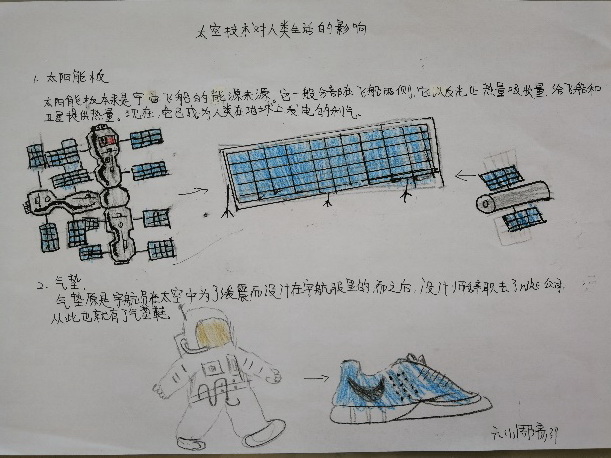 太空技术对人类生活的影响
1. 太阳能板
太阳能板本来是宇宙飞船的能源来源。它一般分部在飞船两侧,它以反光让热量吸收量,给飞船和
卫星提供热量。现在,它已成为人类在地球上发电的利气。
2. 气垫
气垫原是宇航员在太空中为了缓震而设计在宇航服里的,而之后,设计师辞职去了NIKE公司,
从此也就有了气垫鞋。